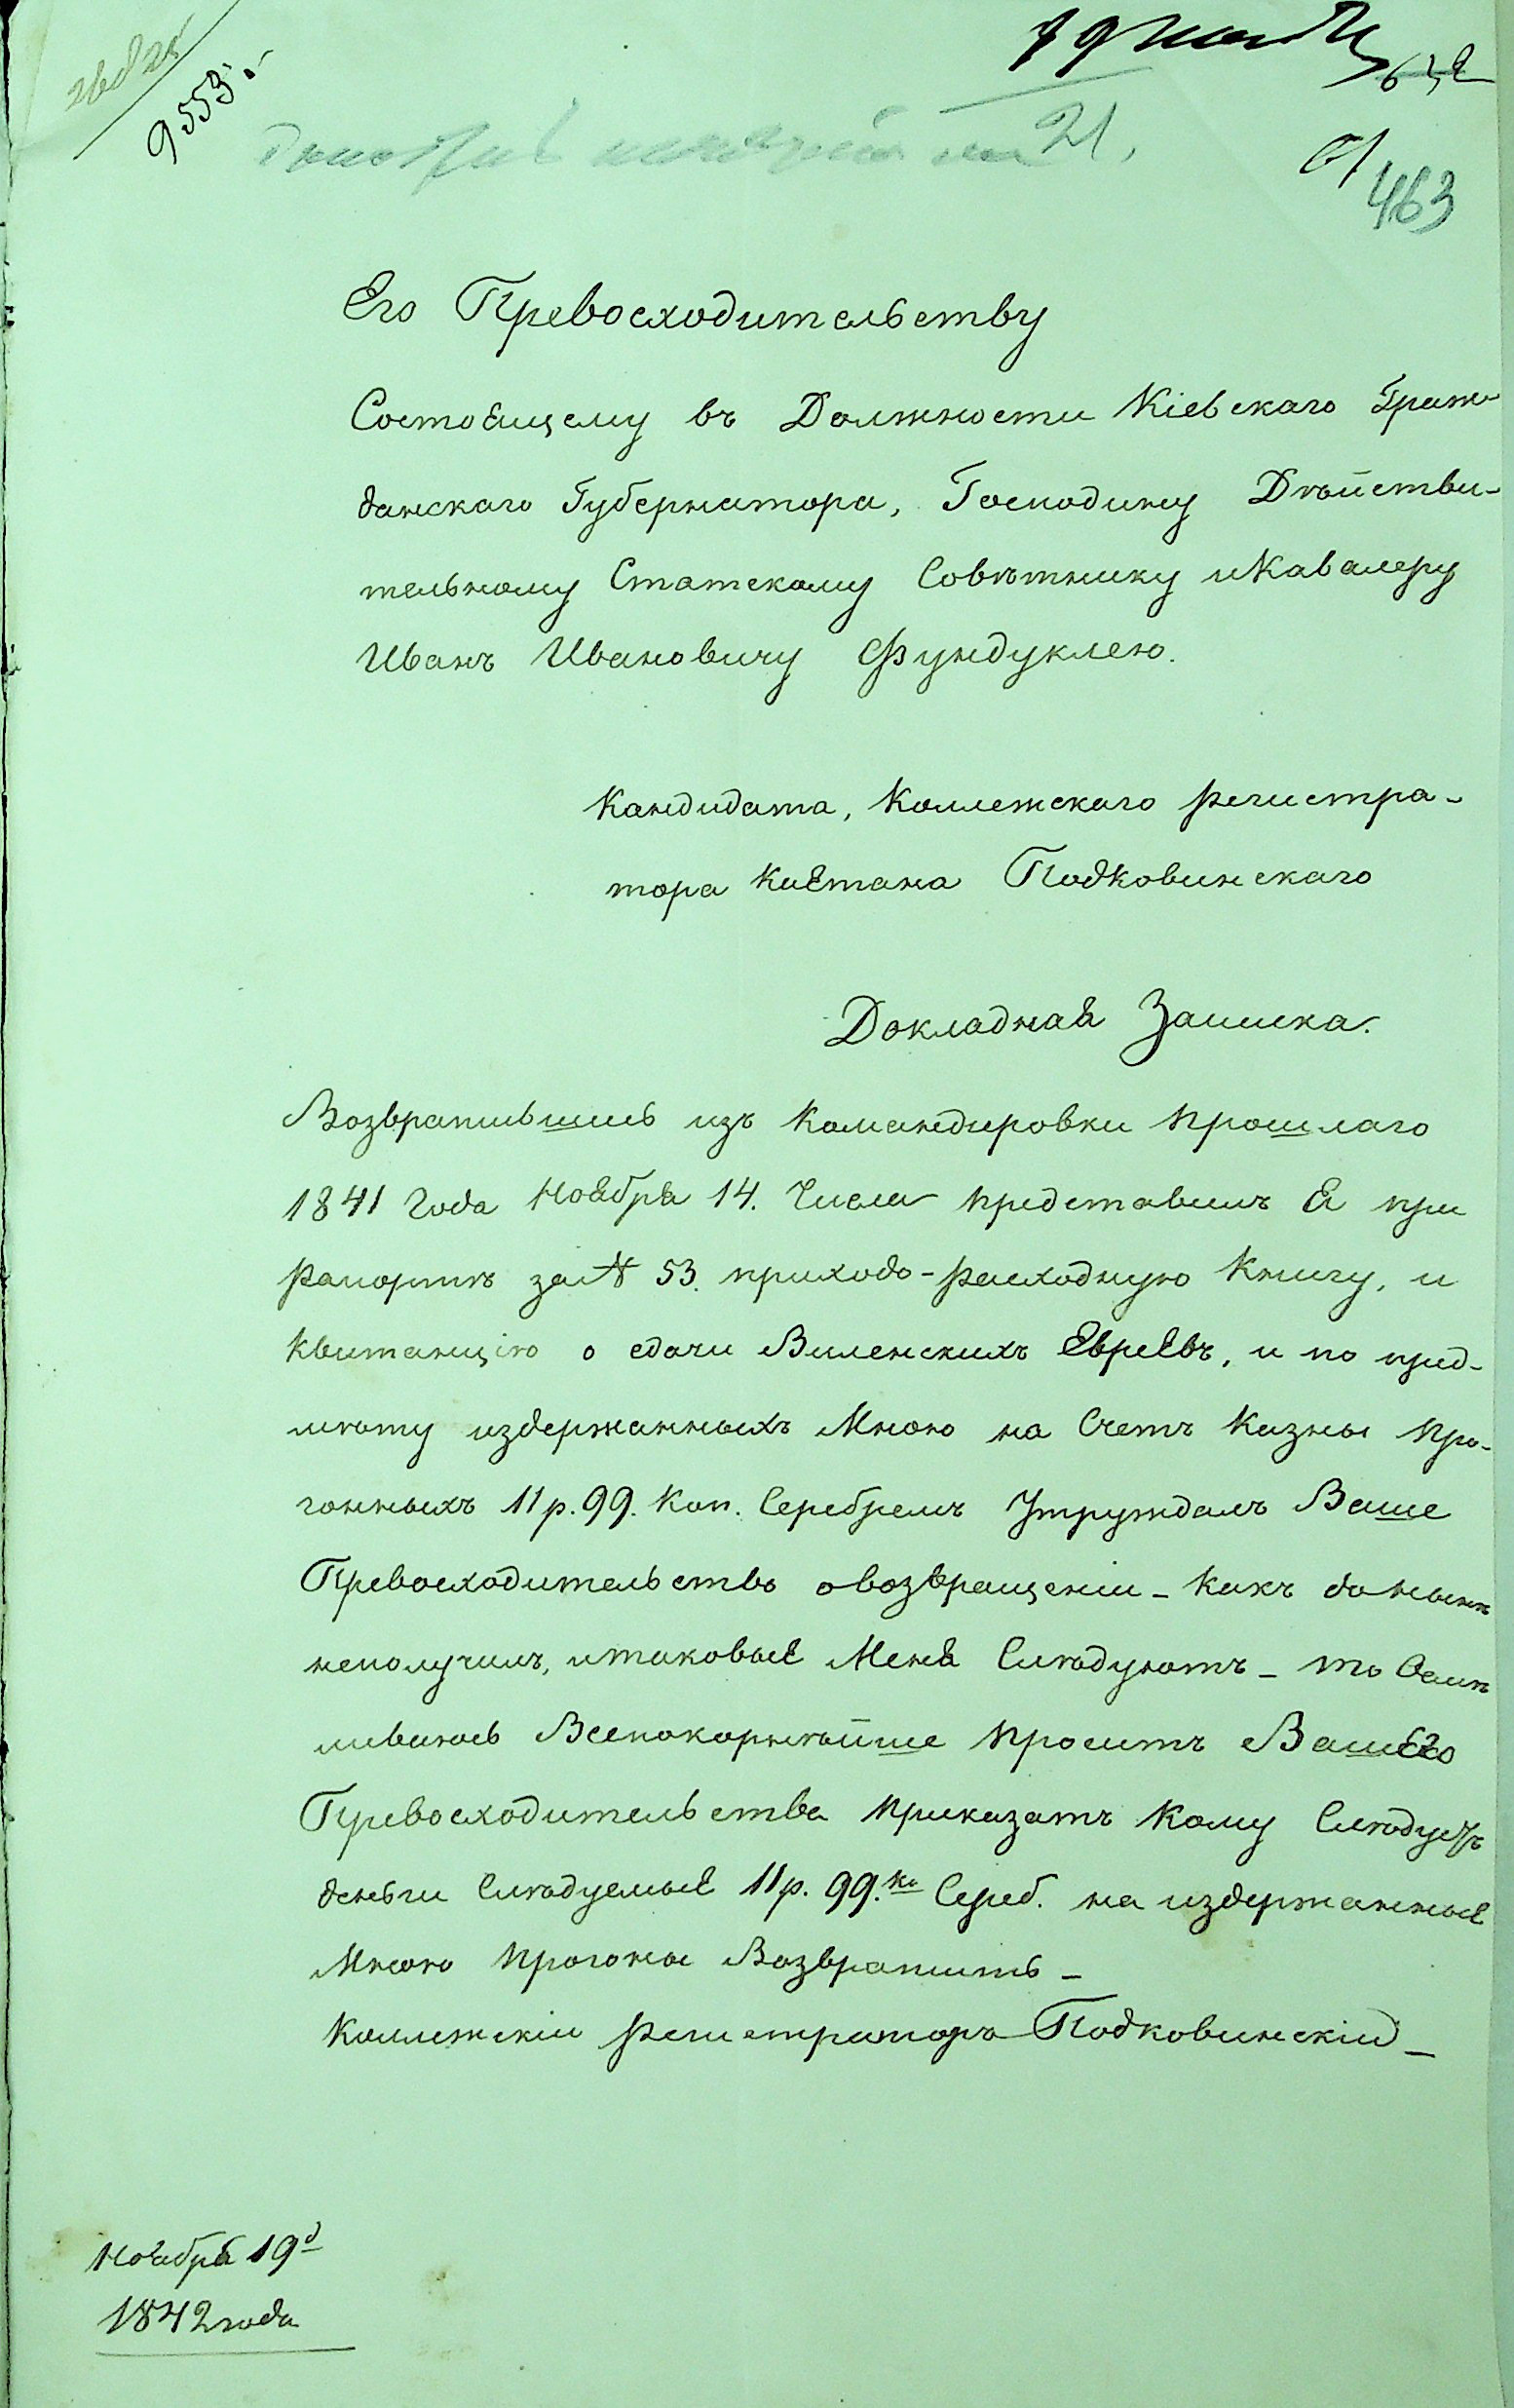 9553.
21.
463
Его Превосходительству
Состоящему въ Должности Кіевскаго Граж-
данскаго Губернатора, Господину Дѣйстви-
тельному Статскому Совѣтнику и Кавалеру
Иванъ Ивановичу Фундуклею.
Кандидата, Коллежскаго регистра-
тора Каетана Подковинскаго
Докладная Записка.
Возвратившись изъ Командировки прошлаго
1841 Года Ноября 14. Числа представилъ я при
рапортѣ за № 53. приходо-расходную Книгу, и
Квитанцію о сдачи Виленскихъ Евреевъ, и по пред-
мѣту издержанныхъ Мною на Счетъ Казны про-
гонныхъ 11 р. 99. Коп. Серебремъ Утруждалъ Ваше
Превосходительство о возвращеніи – Какъ донынѣ
неполучилъ, и таковые Меня Слѣдуютъ – то Осмѣ
ливаюсь Всепокорнѣйше просить Вашего
Превосходительства приказать Кому Слѣдуетъ
деньги Слѣдуемые 11 р. 99. ко Сереб. на издержанные
Мною прогоны Возвратить –
Коллежскій регистраторъ Подковинскій –
Ноября 19 д
1842 года